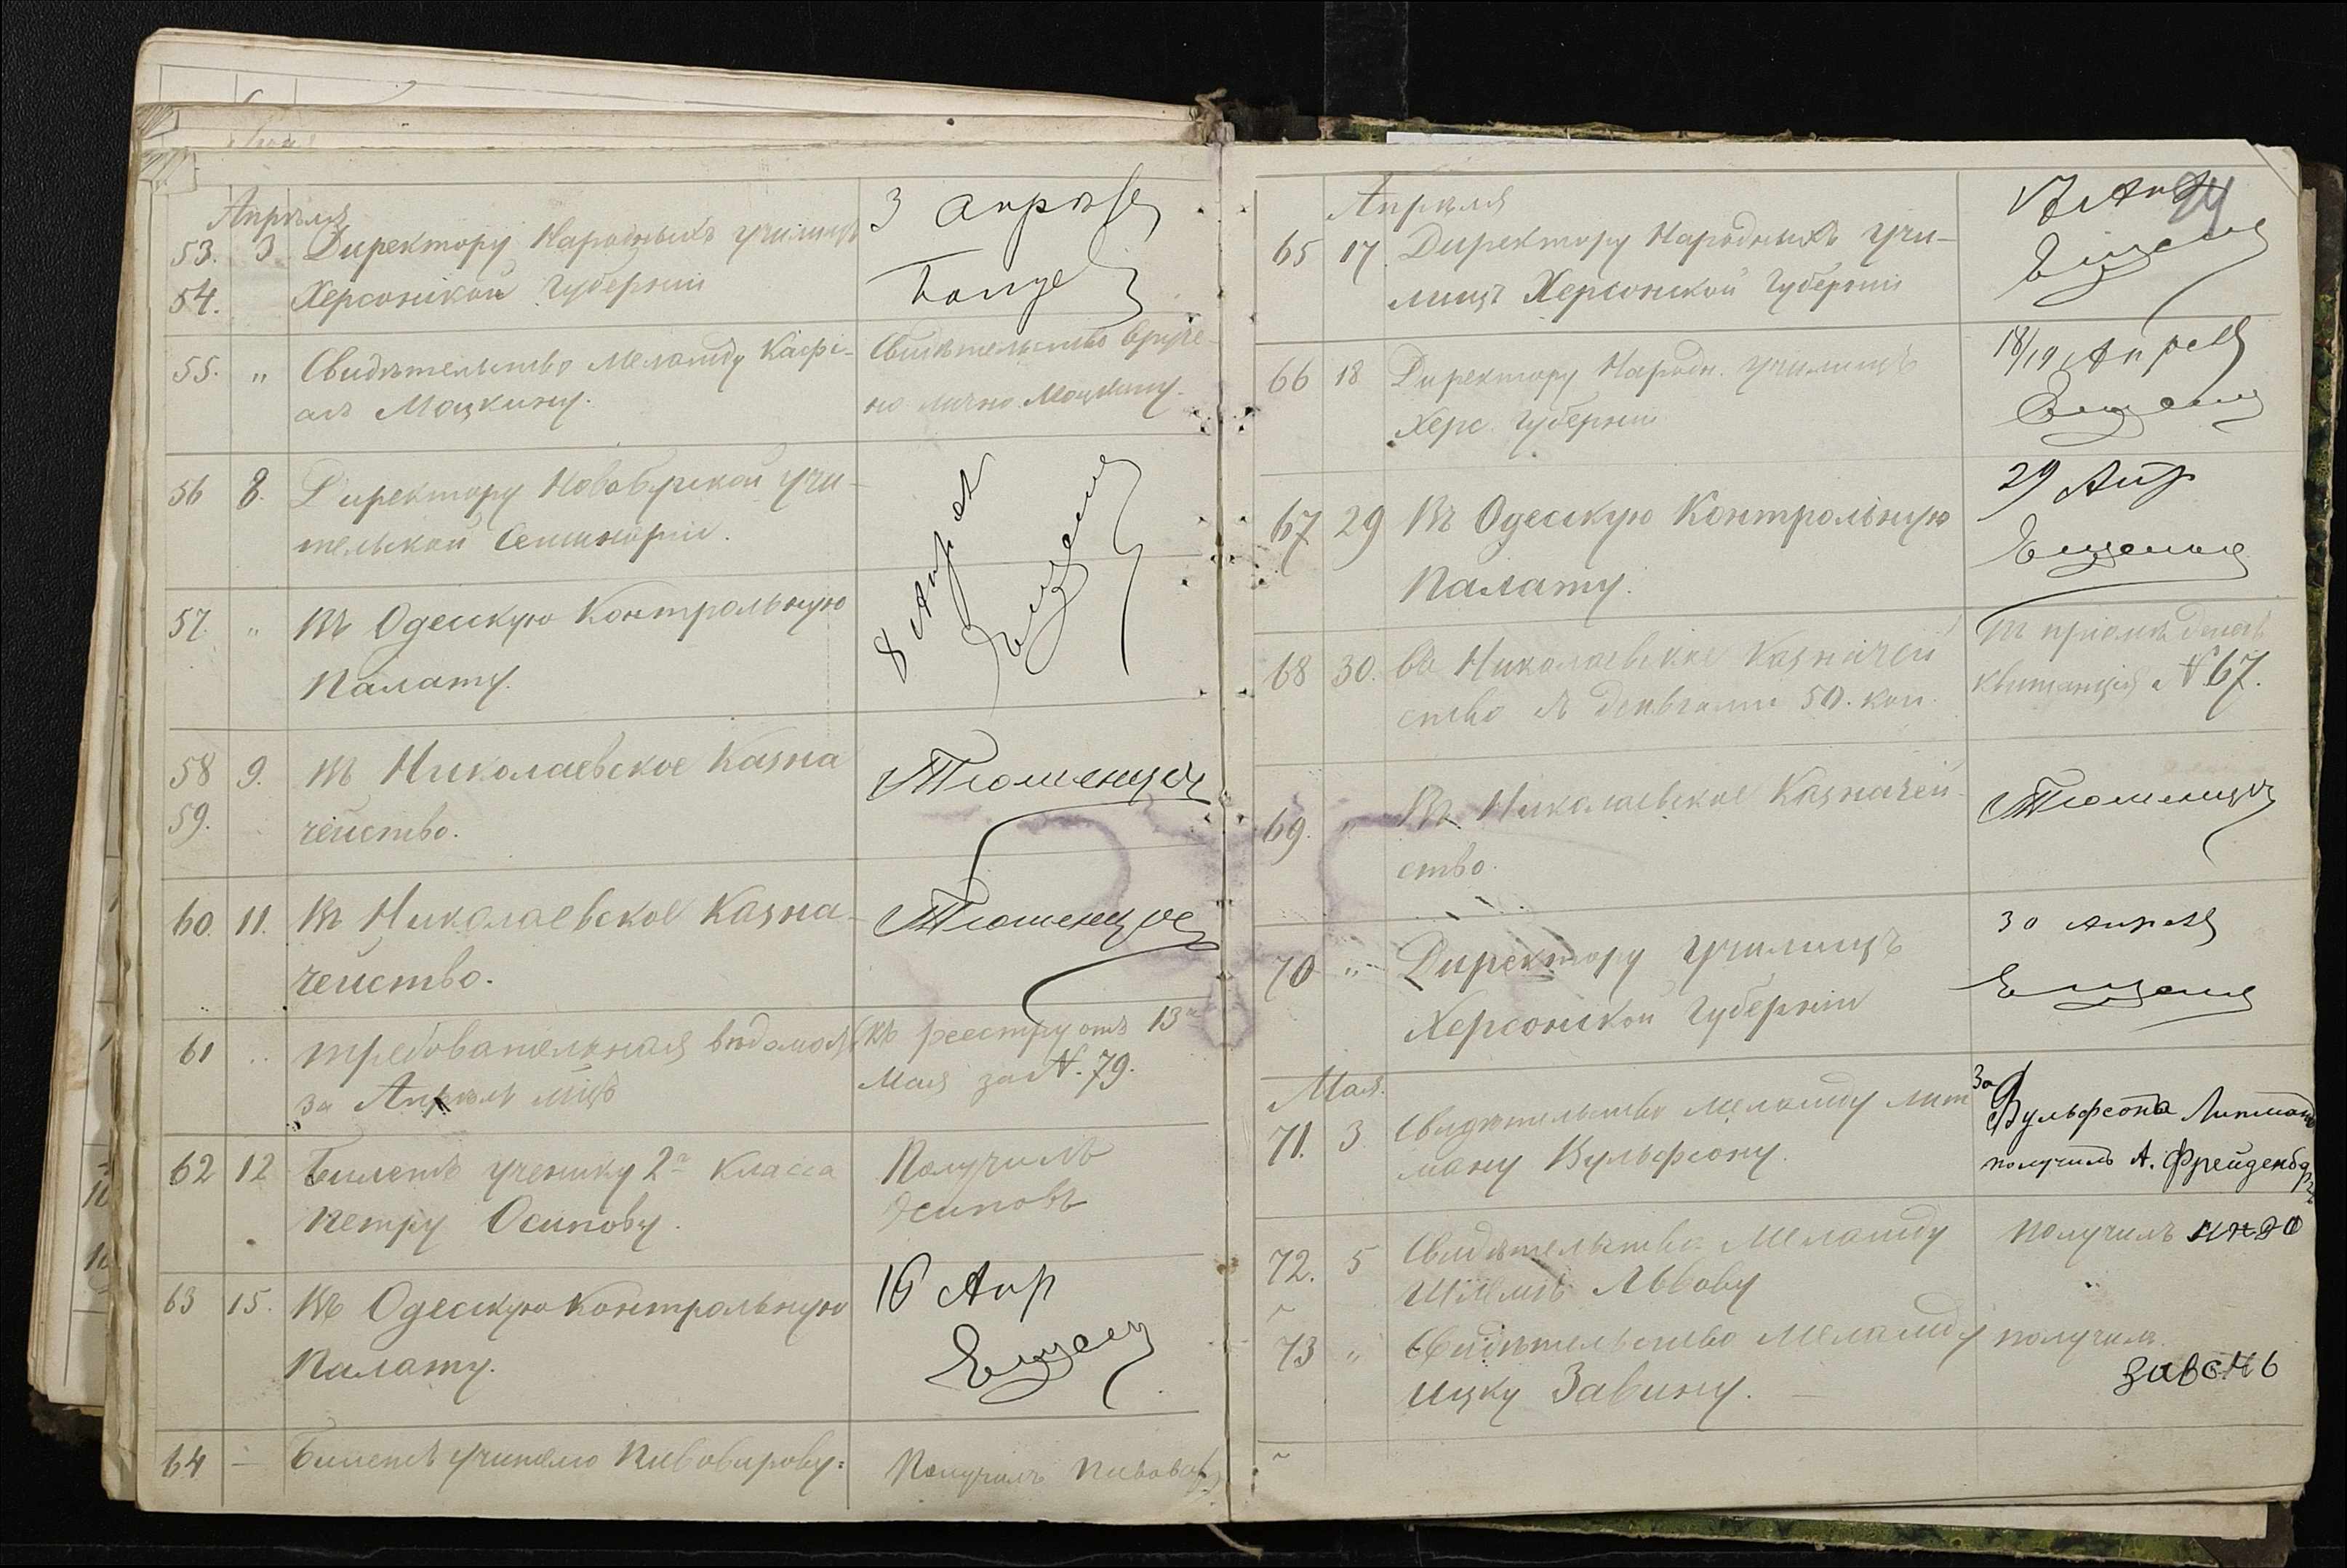 Апрѣля
53. 3 Директору Народныхъ училищъ
54. Херсонской Губерніи
3 апрѣля
55. " Свидѣтельство меламду Касрі-
алъ Моцкину.
Свидѣтельство вруче-
но лично Моцкину.
56 8. Директору Новобугской учи-
тельской Семинаріи.
57. " Въ Одесскую Контрольную
Палату.
8 Апрѣл
58 9. въ Николаевское Казна
59. чейство.
Тюменцов
60 11. Въ Николаевское Казна-
чейство.
Тюменцов
61 " требовательная вѣдомость
за Апрѣль мѣцъ
къ реестру отъ 13го
мая за N. 79.
62 12 Билетъ ученику 2го класса
Петру Осипову.
Получилъ
Осиповъ
63 15. Въ Одесскую Контрольную
Палату.
16 Апр
64 — Билетъ учителю Пивоварову.
Получилъ Пивовар
94
Апрѣля
65 17. Директору Народныхъ учи-
лищъ Херсонской Губерніи
17 Апр
66 18 Директору Народн. училищъ
Херс. Губерніи
18/19 Апреля
67 29 Въ Одесскую Контрольную
Палату.
29 Апр
68 30. Въ Николаевское Казначей
ство съ деньгами 50. коп.
въ пріемѣ денегъ
квитанція N 67.
69. " Въ Николаевское Казначей-
ство.
Тюменцов
70 " Директору училищъ
Херсонской Губерніи
30 Апреля
Мая.
71. 3. Свидѣтельство меламду Лип
ману Вульфсону.
За
Вульфсона Липмана
получилъ А. Фрейденберг
72. 5 Свидѣтельство Меламду
Шлемѣ Львову
получилъ
73 " Свидѣтельство Меламду
Ицку Завину. —
получилъ
завенъ